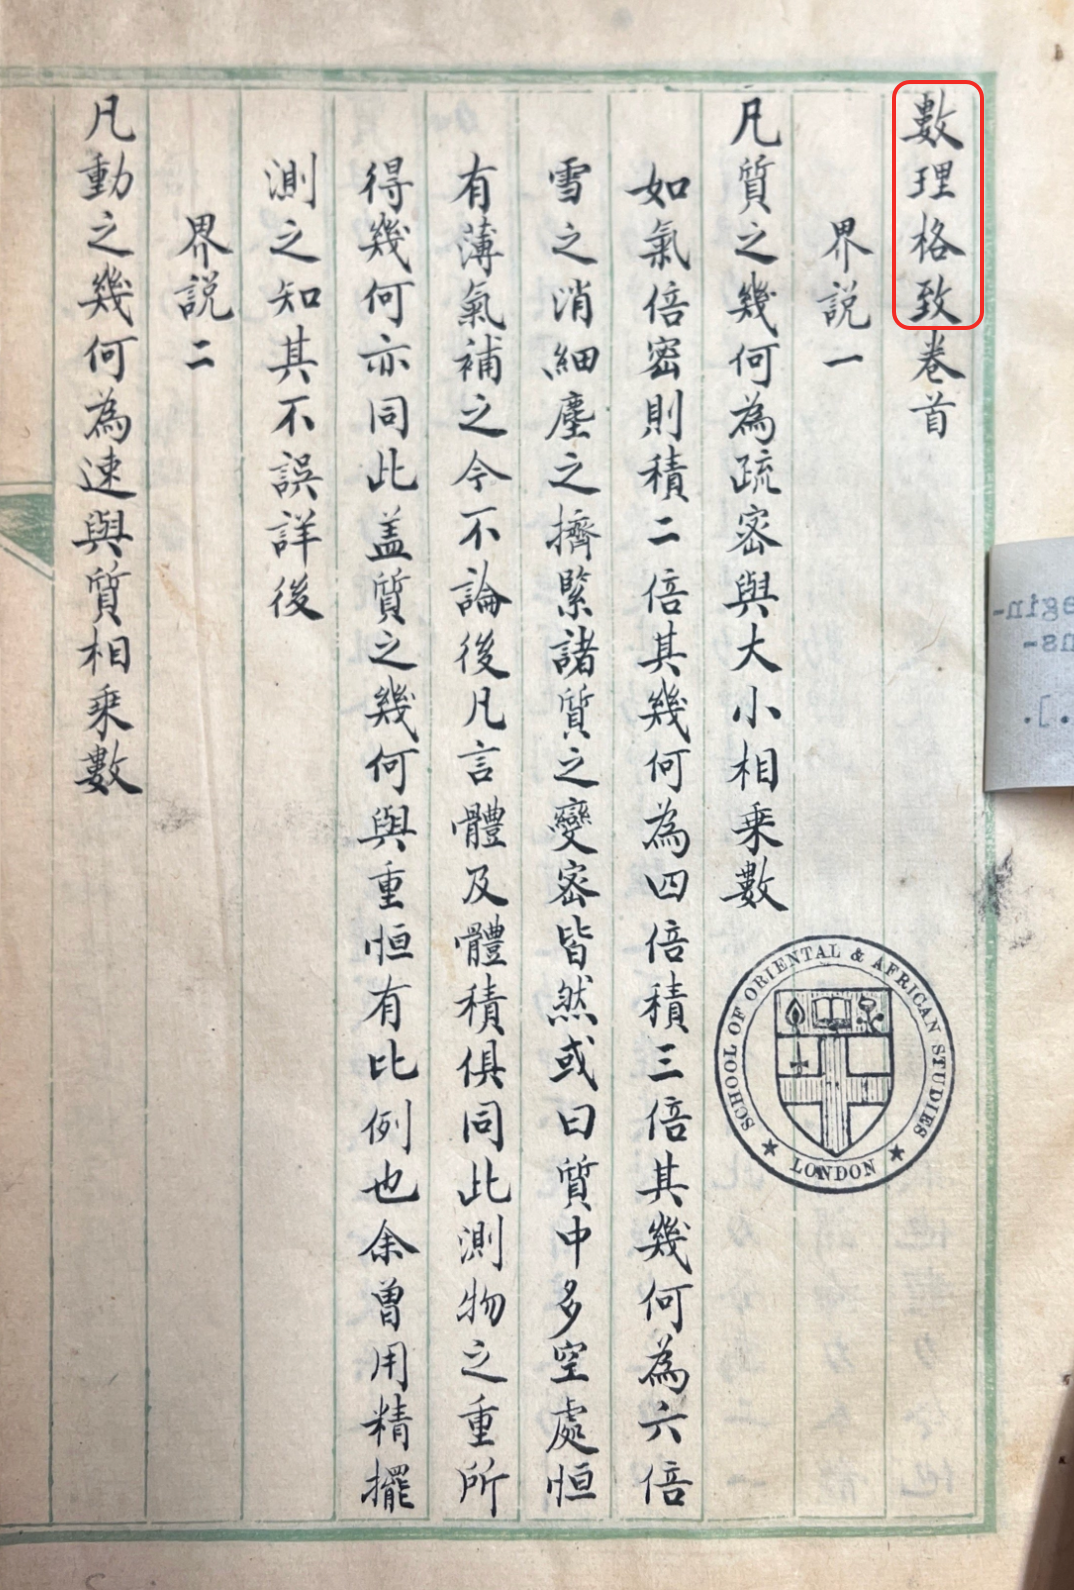 數理格致卷首
界説一
凡質之幾何為疏密與大小相乗數
如氣倍密則積二倍其幾何為四倍積三倍其幾何為六倍
雪之消細塵之擠緊諸質之變密皆然或曰質中多空處恒
有薄氣補之今不論後凡言體及體積俱同此測物之重所
得幾何亦同此盖質之幾何與重恒有比例也余曾用精擺
測之知其不誤詳後
界説二
凡動之幾何為速與質相乗數
SCHOOL OF ORIENTAL & AFRICAN STUDIES
LONDON